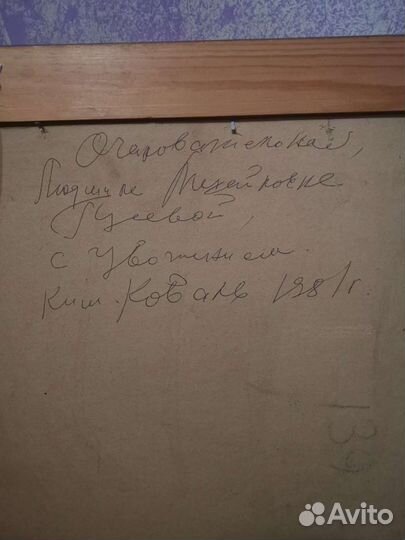 Очаровательной,
Людмиле Михайловне
Гусевой,
с уважением.
Ким. Коваль 1981г.
139
Avito